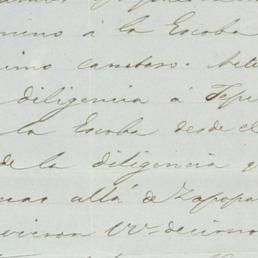 mino á la Escoba
imo carretero.
diligencia á Tepi
la Escoba desde el
de la diligencia q
mas allá de Zapopa
vieron VV. decirno